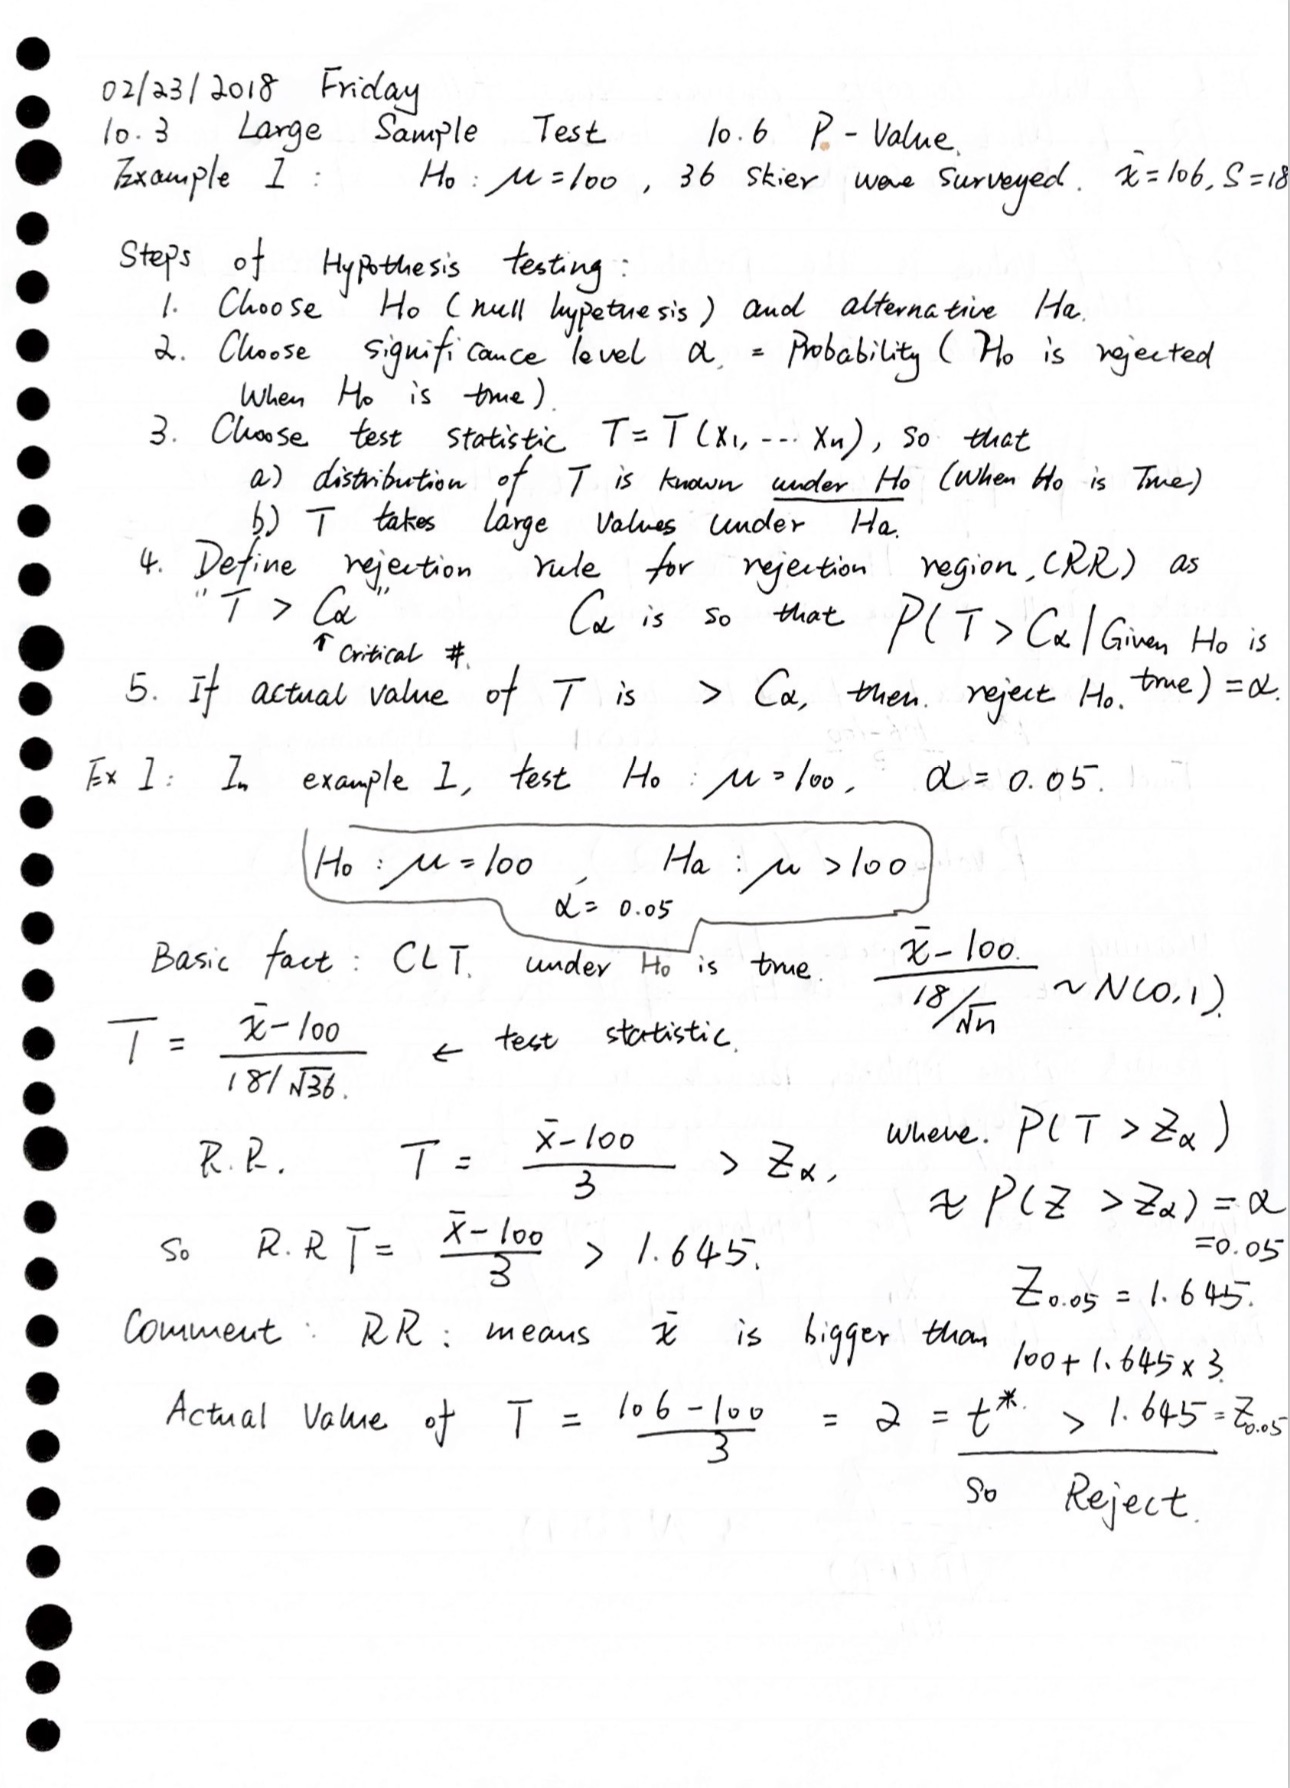 02/23/2018 Friday
10.3 Large Sample Test 10.6 P-Value.
Example 1: H₀: μ=100, 36 skier were surveyed. x̄=106, S=18
Steps of Hypothesis testing:
1. Choose H₀ (null hypetuesis) and alternative Ha.
2. Choose significance level α, = Probability (H₀ is rejected
when H₀ is true).
3. Choose test statistic T = T(x₁, --- xₙ), so that
a) distribution of T is known under H₀ (when H₀ is True)
b) T takes large values under Ha.
4. Define rejection rule for rejection region, (RR) as
"T > Cα" Cα is so that P(T > Cα | Given H₀ is
↑ critical #.
5. If actual value of T is > Cα, then. reject H₀. true) = α.
Ex 1: In example 1, test H₀: μ=100, α = 0.05.
H₀: μ=100, Ha: μ>100
α = 0.05
Basic fact: CLT. under H₀ is true. (x̄-100.)/(18/√n) ~ N(0,1).
T = (x̄-100)/(18/√36.) ← test statistic.
R.R. T = (x̄-100)/3 > Zα, where. P(T > Zα)
≈ P(Z > Zα) = α
=0.05
so R.R T = (x̄-100)/3 > 1.645.
Z₀.₀₅ = 1.645.
Comment: RR: means x̄ is bigger than
100+1.645x3.
Actual Value of T = (106-100)/3 = 2 = t*. > 1.645 = Z₀.₀₅
so Reject.